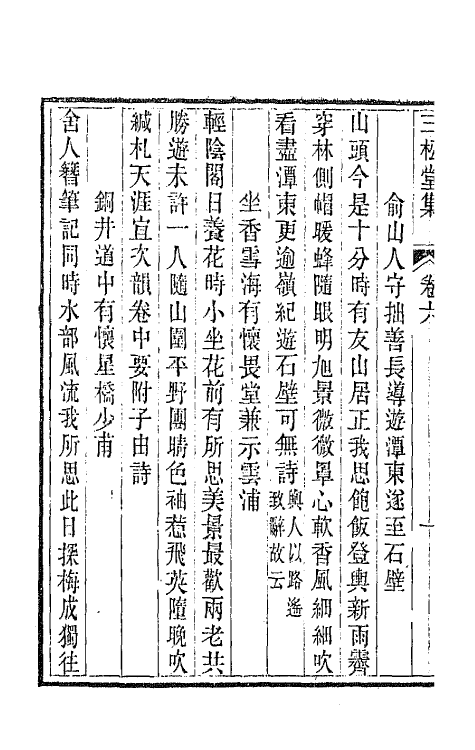 三松堂集 卷六
俞山人守拙善長導遊潭東遂至石壁
山頭今是十分時有友山居正我思飽飯登輿新雨霽
穿林側帽暖蜂隨眼明旭景微微罩心軟香風細細吹
看盡潭東更逾嶺紀遊石壁可無詩輿人以路遙致辭故云
坐香雪海有懷畏堂兼示雲浦
輕陰閣日養花時小坐花前有所思美景最歡兩老共
勝遊未許一人隨山圍平野團晴色袖惹飛英墮晚吹
緘札天涯宜次韻卷中要附子由詩
銅井道中有懷星橋少甫
舍人簪筆記同時水部風流我所思此日探梅成獨往